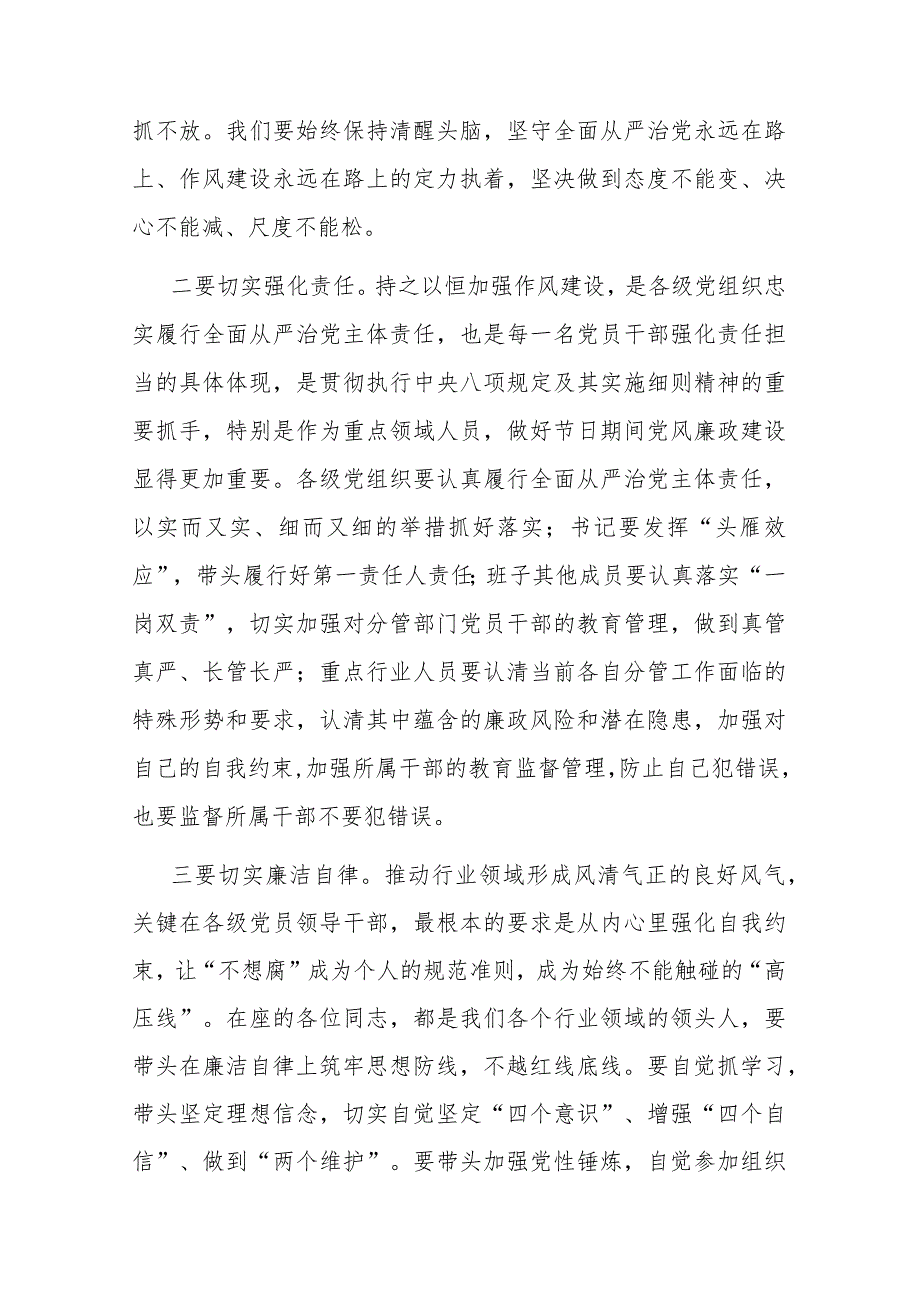 抓不放。我们要始终保持清醒头脑，坚守全面从严治党永远在路
上、作风建设永远在路上的定力执着，坚决做到态度不能变、决
心不能减、尺度不能松。
二要切实强化责任。持之以恒加强作风建设，是各级党组织忠
实履行全面从严治党主体责任，也是每一名党员干部强化责任担
当的具体体现，是贯彻执行中央八项规定及其实施细则精神的重
要抓手，特别是作为重点领域人员，做好节日期间党风廉政建设
显得更加重要。各级党组织要认真履行全面从严治党主体责任，
以实而又实、细而又细的举措抓好落实；书记要发挥“头雁效
应”，带头履行好第一责任人责任；班子其他成员要认真落实“一
岗双责”，切实加强对分管部门党员干部的教育管理，做到真管
真严、长管长严；重点行业人员要认清当前各自分管工作面临的
特殊形势和要求，认清其中蕴含的廉政风险和潜在隐患，加强对
自己的自我约束,加强所属干部的教育监督管理,防止自己犯错误,
也要监督所属干部不要犯错误。
三要切实廉洁自律。推动行业领域形成风清气正的良好风气，
关键在各级党员领导干部，最根本的要求是从内心里强化自我约
束，让“不想腐”成为个人的规范准则，成为始终不能触碰的“高
压线”。在座的各位同志，都是我们各个行业领域的领头人，要
带头在廉洁自律上筑牢思想防线，不越红线底线。要自觉抓学习，
带头坚定理想信念，切实自觉坚定“四个意识”、增强“四个自
信”、做到“两个维护”。要带头加强党性锤炼，自觉参加组织